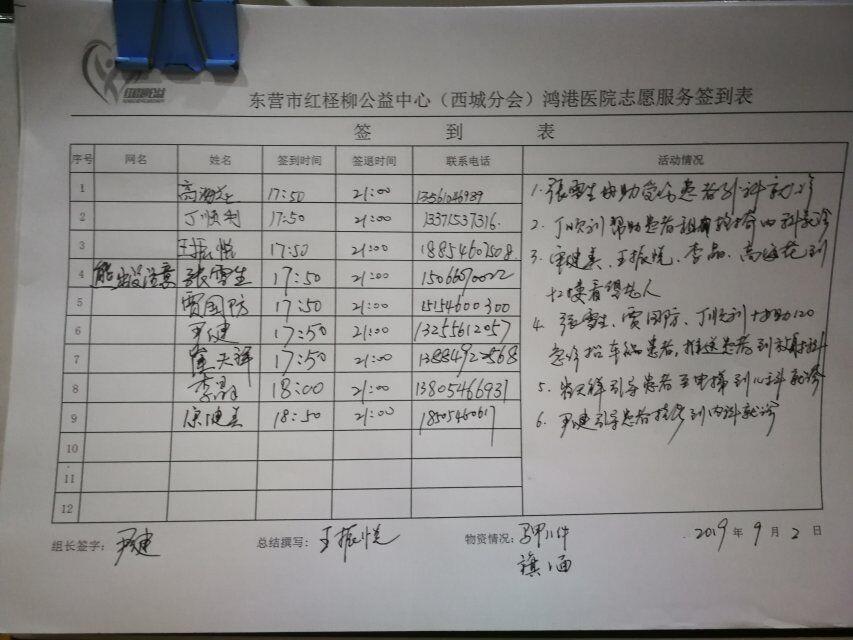 东营市红柽柳公益中心（西城分会）鸿港医院志愿服务签到表
签 到 表
序号 网名 姓名 签到时间 签退时间 联系电话 活动情况
1 17:50 21:00 13561046939
2 丁顺利 17:50 21:00 13371537316.
3 王振悦 17:50 21:00 18854607508
4 张雪生 17:50 21:00
5 贾国防 17:50 21:00 15154600300
6 尹健 17:50 21:00 13255612057
7 天祥 17:50 21:00
8 李晶 18:00 21:00 13805466931
9 健美 18:50 21:00
10
11
12
1. 张雪生协助 患者到 科就诊
2. 丁顺利帮助患者 内科就诊
3. 健美、王振悦、李晶、高海花到
12楼看望老人
4. 张雪生、贾国防、丁顺利协助120
急诊 患者，推送患者到放射科
5. 天祥引导患者 电梯到 科就诊
6. 尹健引导患者 到内科就诊
组长签字： 尹健 总结撰写： 王振悦 物资情况： 马甲 件 2019 年 9 月 2 日
旗 面